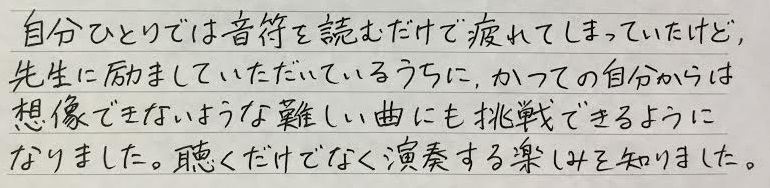 自分ひとりでは音符を読むだけで疲れてしまっていたけど,
先生に励ましていただいているうちに, かつての自分からは
想像できないような難しい曲にも挑戦できるように
なりました。聴くだけでなく演奏する楽しみを知りました。